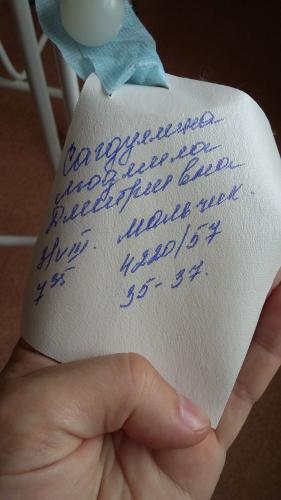 Сагдулина
Людмила
Дмитриевна
21/VIII. мальчик.
7 35 4220/57
35-37.